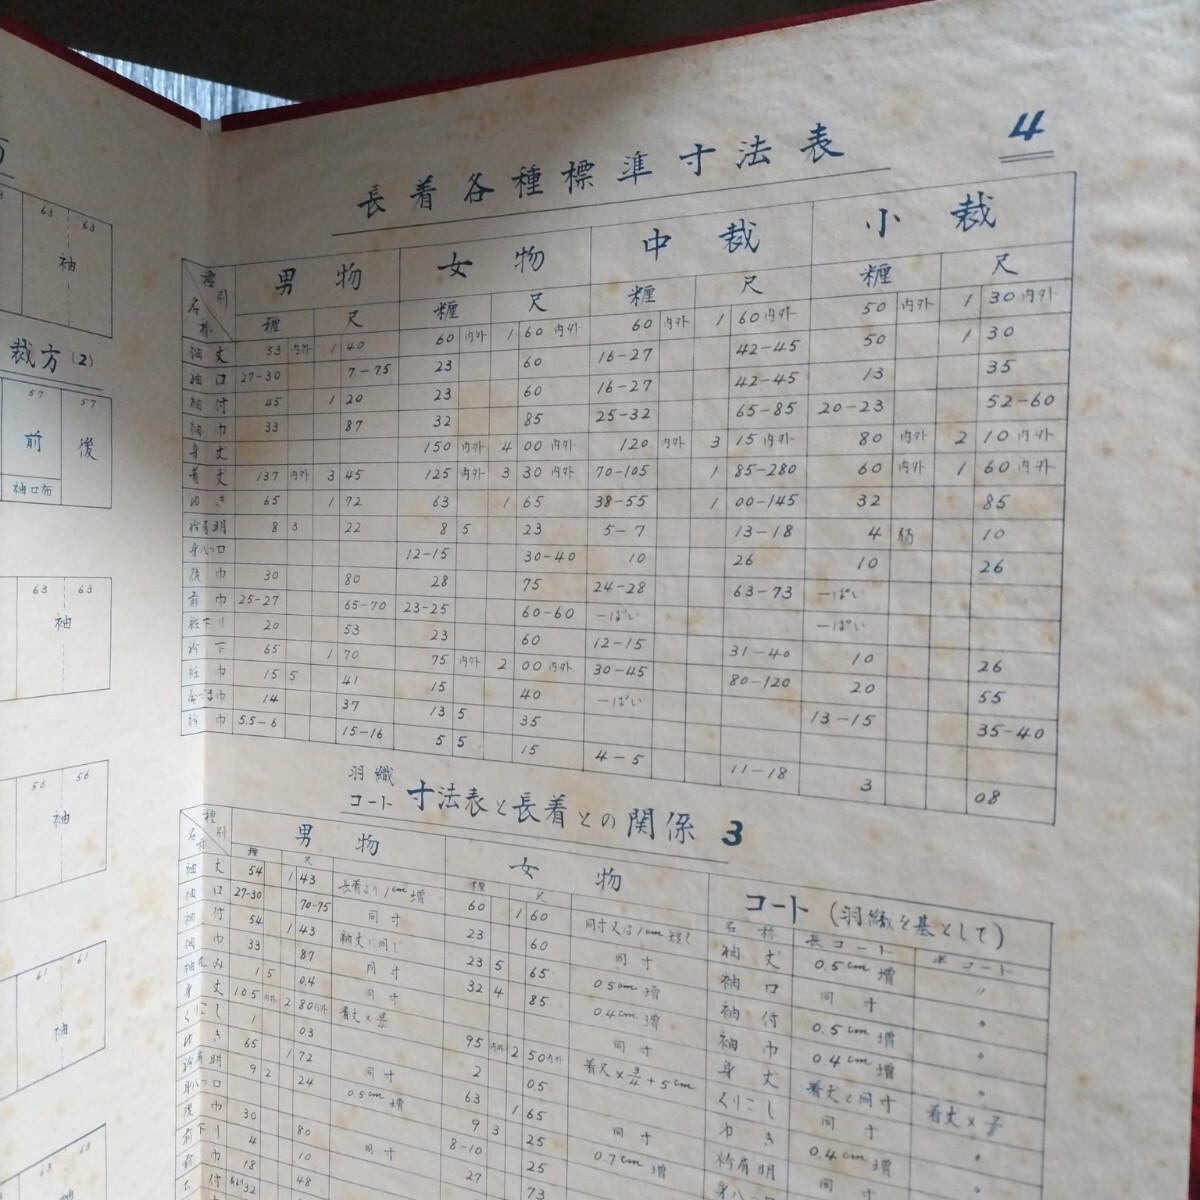 4
長着各種標準寸法表
種別 名称 男物 女物 中裁 小裁
糎 尺 糎 尺 糎 尺 糎 尺
袖丈 53 内外 1 40 60 内外 1 60 内外 60 内外 1 60 内外 50 内外 1 30 内外
袖口 27-30 7-75 23 60 16-27 42-45 50 1 30
袖付 45 1 20 23 60 16-27 42-45 13 35
袖巾 33 87 32 85 25-32 65-85 20-23 52-60
身丈 150 内外 4 00 内外 120 内外 3 15 内外 80 内外 2 10 内外
着丈 137 内外 3 45 125 内外 3 30 内外 70-105 1 85-280 60 内外 1 60 内外
ゆき 65 1 72 63 1 65 38-55 1 00-145 32 85
衿肩明 8 3 22 8 5 23 5-7 13-18 4 10
身八つ口 12-15 30-40 10 26 10 26
後巾 30 80 28 75 24-28 63-73 一ぱい
前巾 25-27 65-70 23-25 60-60 一ぱい 一ぱい
衽下り 20 53 23 60 12-15 31-40 10 26
衿下 65 1 70 75 内外 2 00 内外 30-45 80-120 20 55
衽巾 15 5 41 15 40 一ぱい 13-15 35-40
合づま巾 14 37 13 5 35
衿巾 5.5-6 15-16 5 5 15 4-5 11-18 3 08
羽織
コート 寸法表と長着との関係 3
種別 名称 男物 女物 コート (羽織を基として)
糎 尺 糎 尺 名称 長コート 半コート
袖丈 54 1 43 長着より1cm増 60 1 60 同寸又は1cm 袖丈 0.5cm増 〃
袖口 27-30 70-75 同寸 23 60 同寸 袖口 同寸 〃
袖付 54 1 43 袖丈に同じ 23 5 65 0.5cm増 袖付 0.5cm増 〃
袖巾 33 87 同寸 32 4 85 0.4cm増 袖巾 0.4cm増 〃
袖丸み 1 5 0.4 同寸 同寸
身丈 105 内外 2 80 内外 着丈× 95 内外 2 50 内外 着尺×3/4+5cm 身丈 着丈と同寸 着丈×
くりこし 1 03 2 05 くりこし 同寸 〃
ゆき 65 1 72 同寸 63 1 65 同寸 ゆき 0.4cm増 〃
衿肩明 9 2 24 0.5cm増 9 3 25 0.7cm増 衿肩明 同寸 〃
身八つ口 8-10 25 身八つ口
後巾 30 80 同寸 27 73
前下り 4 10
前巾 18 48
32
方
63 63
袖
裁方(2)
57 57
前 後
袖口布
63 63
袖
56 56
袖
61 61
袖
63 63
袖